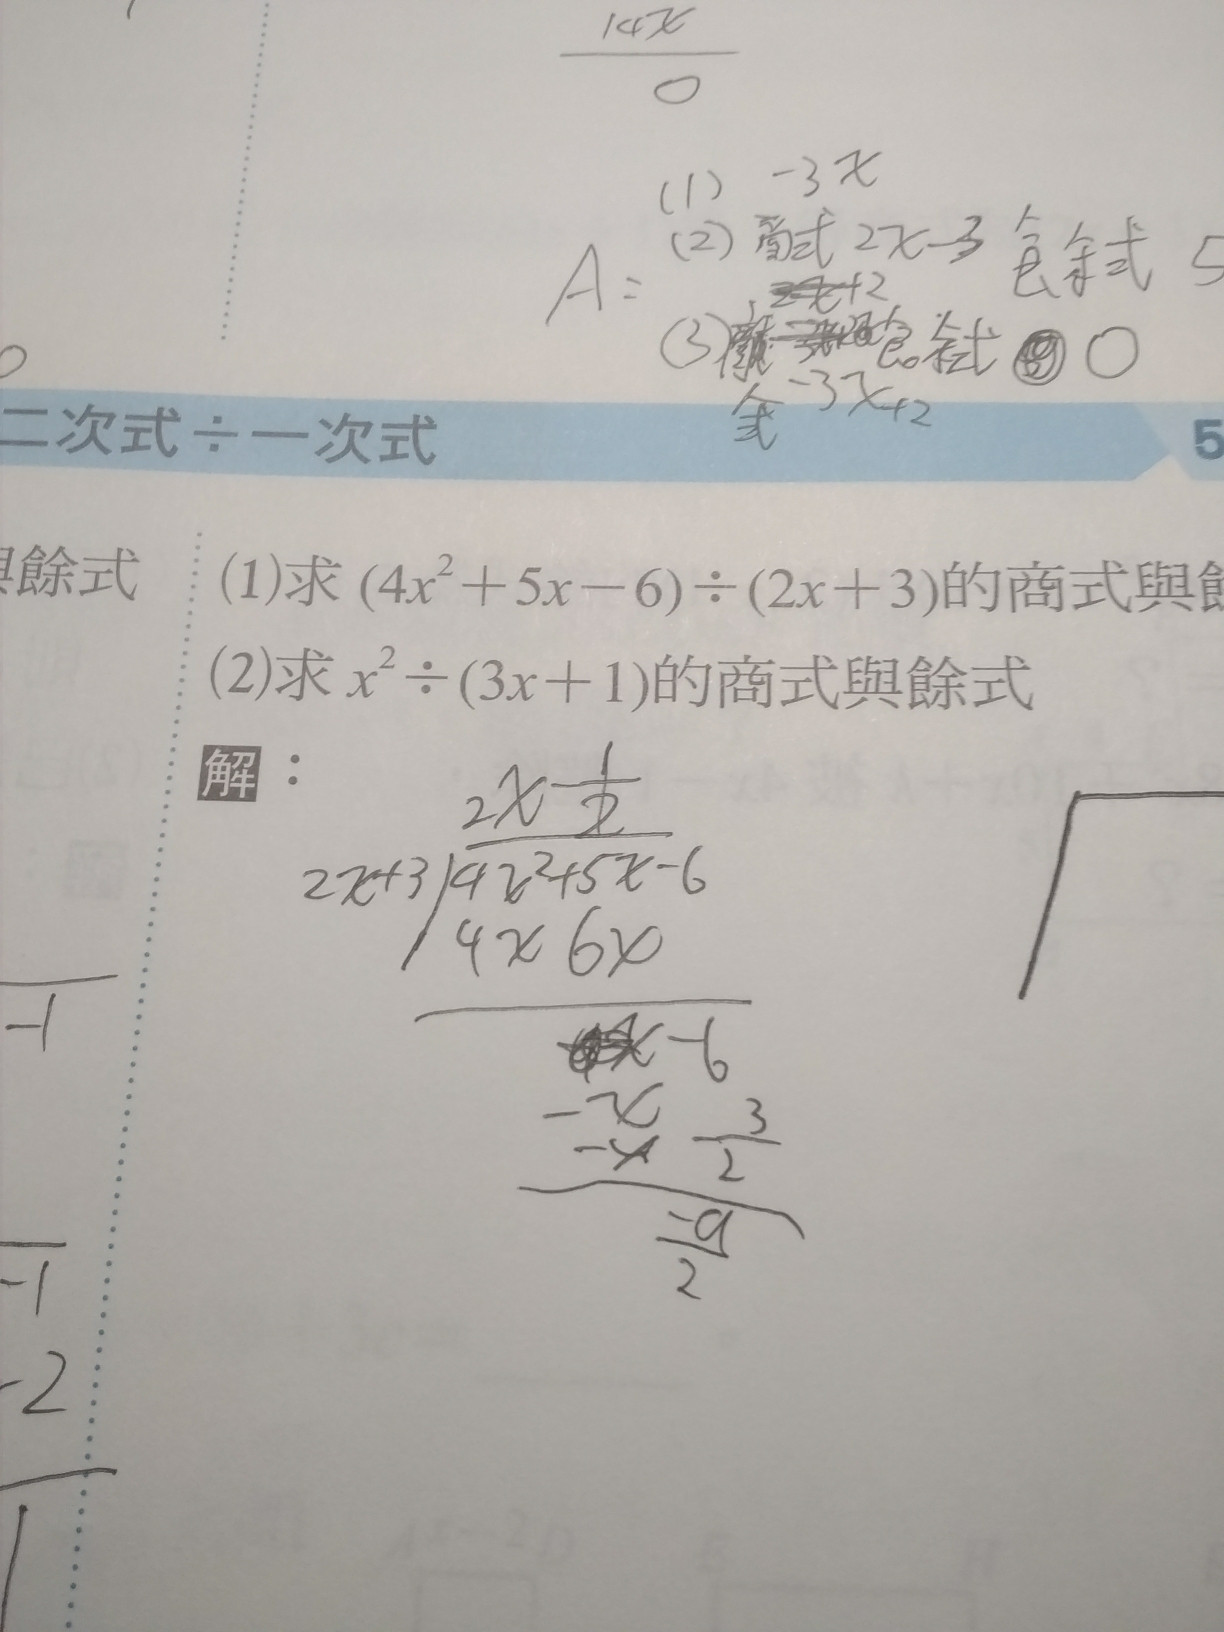 14x
0
(1) -3x
A= (2) 商式 2x-3 食余式 5
+2
(3) 食余式 0
式 -3x+2
二次式÷一次式 5
與餘式
(1)求 (4x²+5x-6)÷(2x+3)的商式與餘
(2)求 x²÷(3x+1)的商式與餘式
解：
2x-1/2
2x+3 4x²+5x-6
4x 6x
-1
x-6
-x
-x -3/2
-9/2
-1
-2